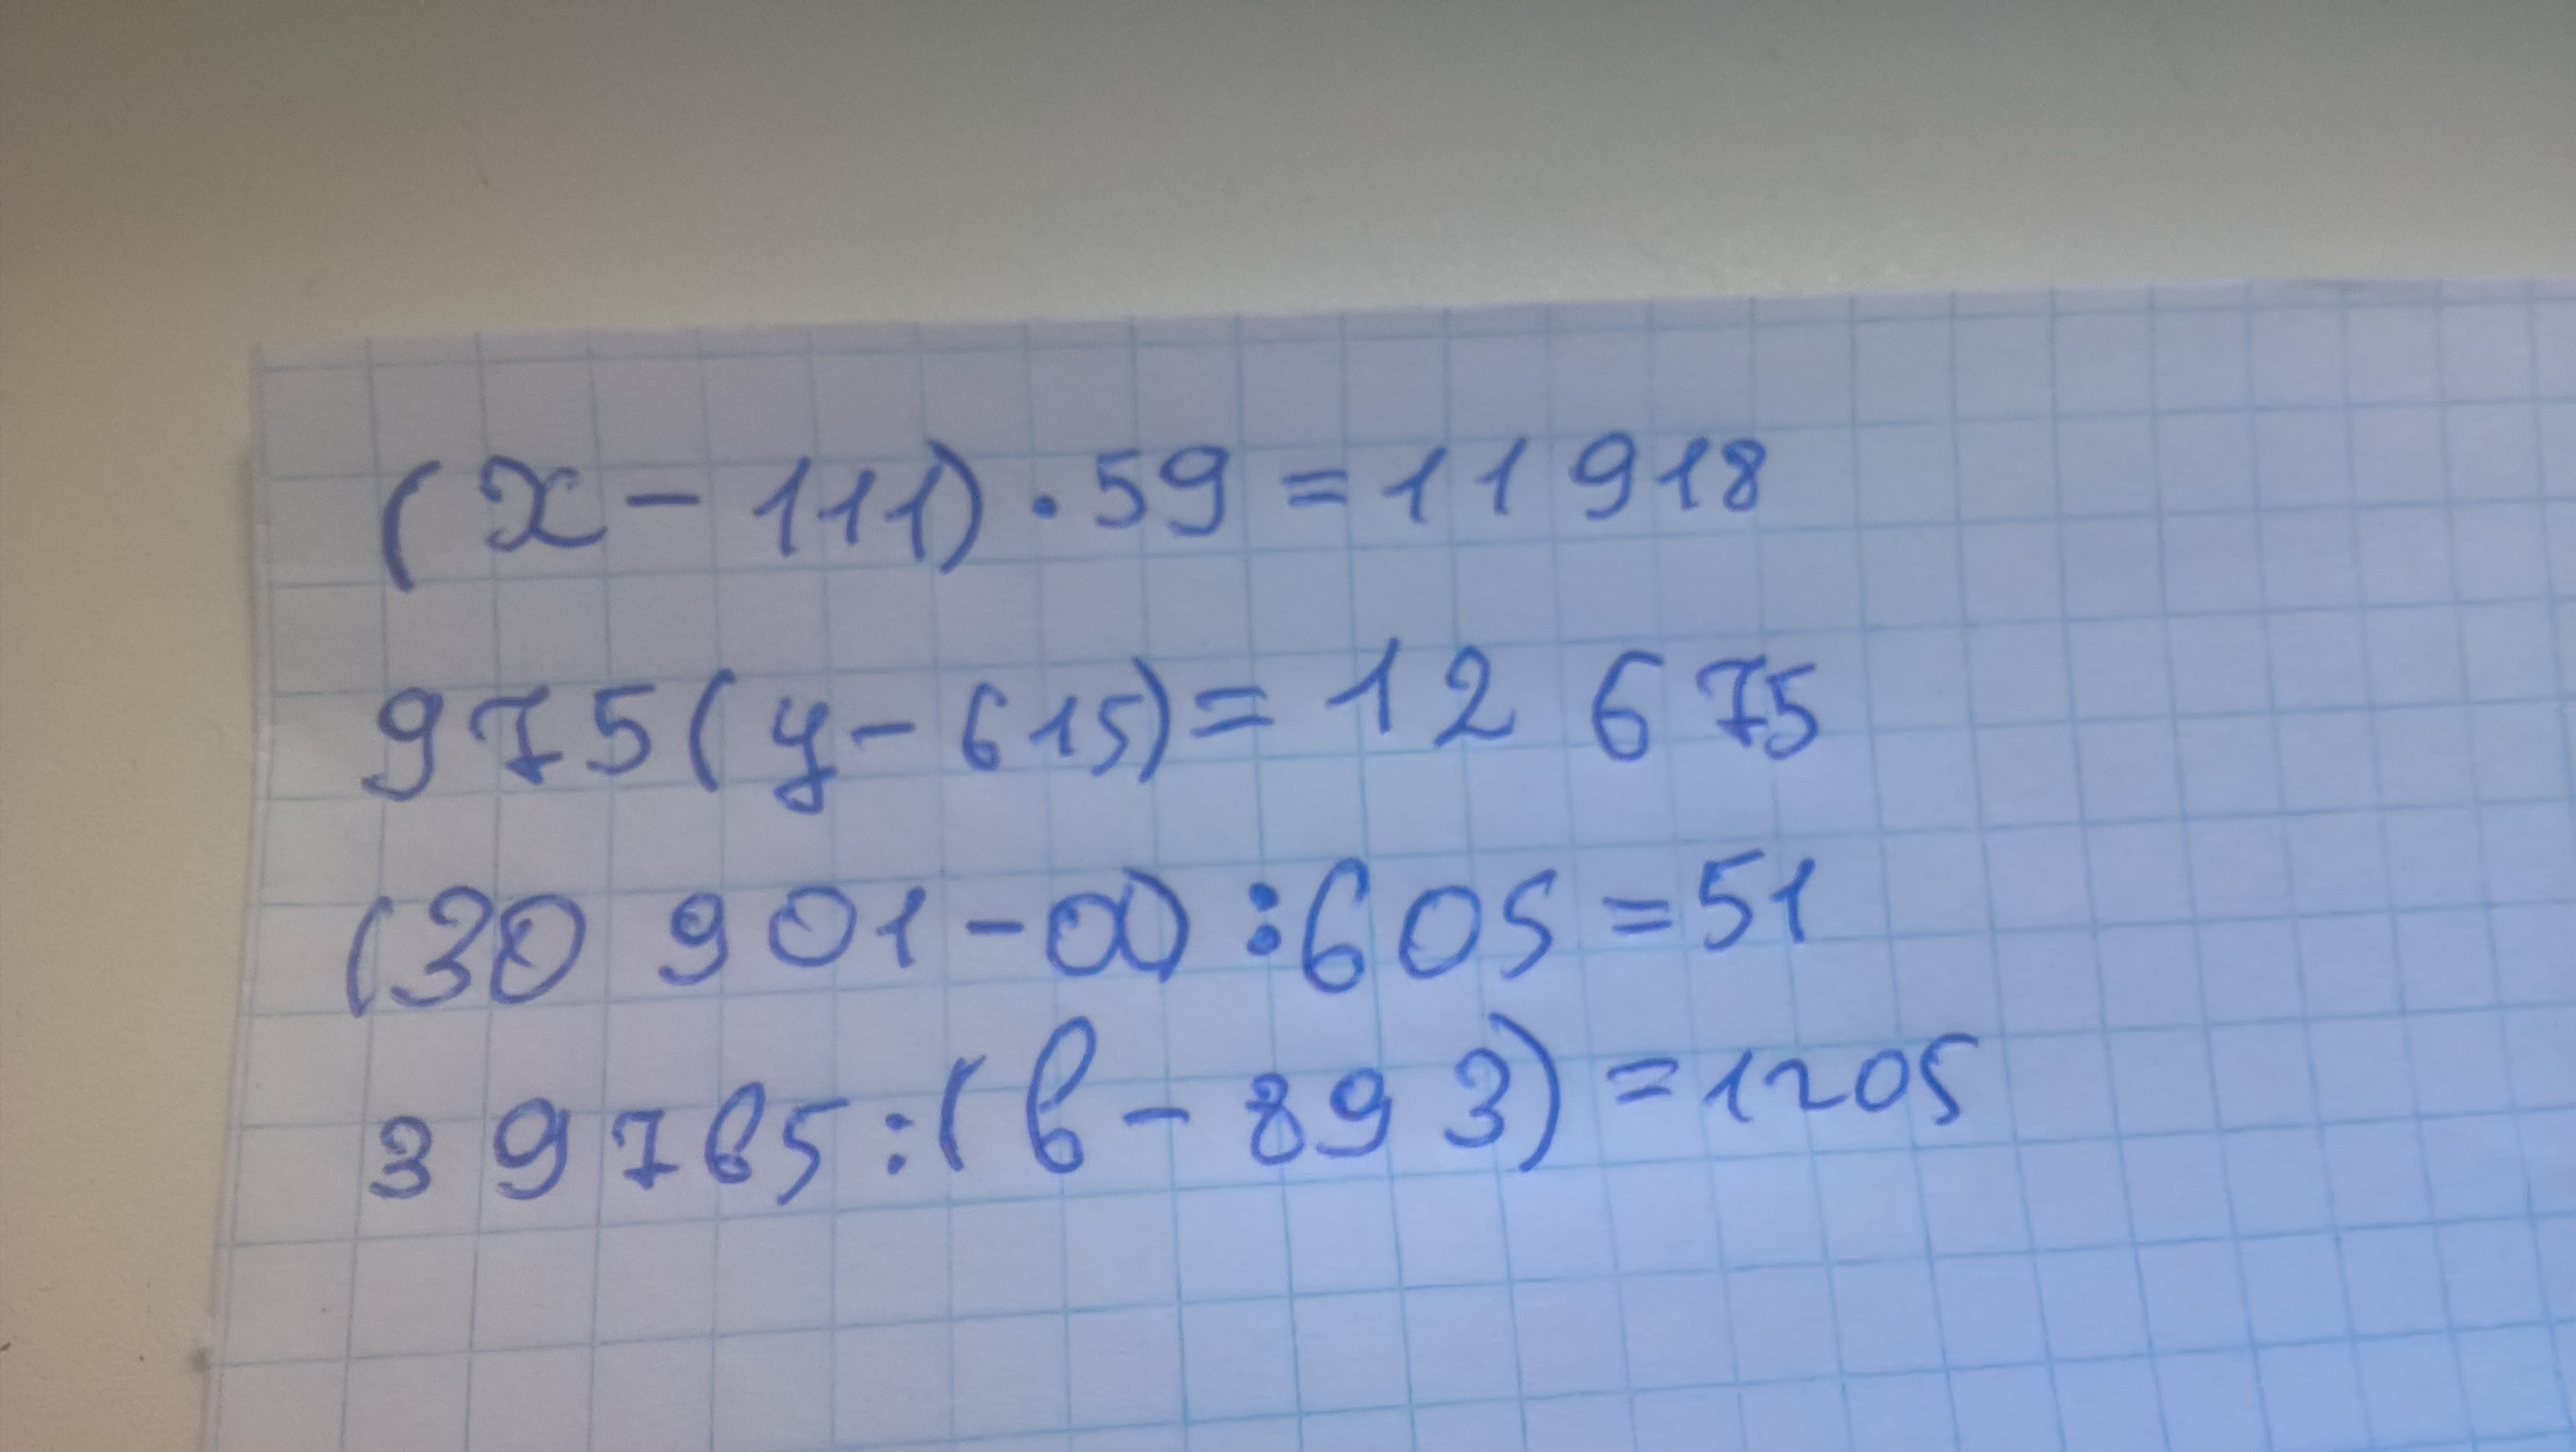 (x - 111) · 59 = 11 918
975 (y - 615) = 12 675
(30 901 - a) : 605 = 51
39765 : (b - 893) = 1205